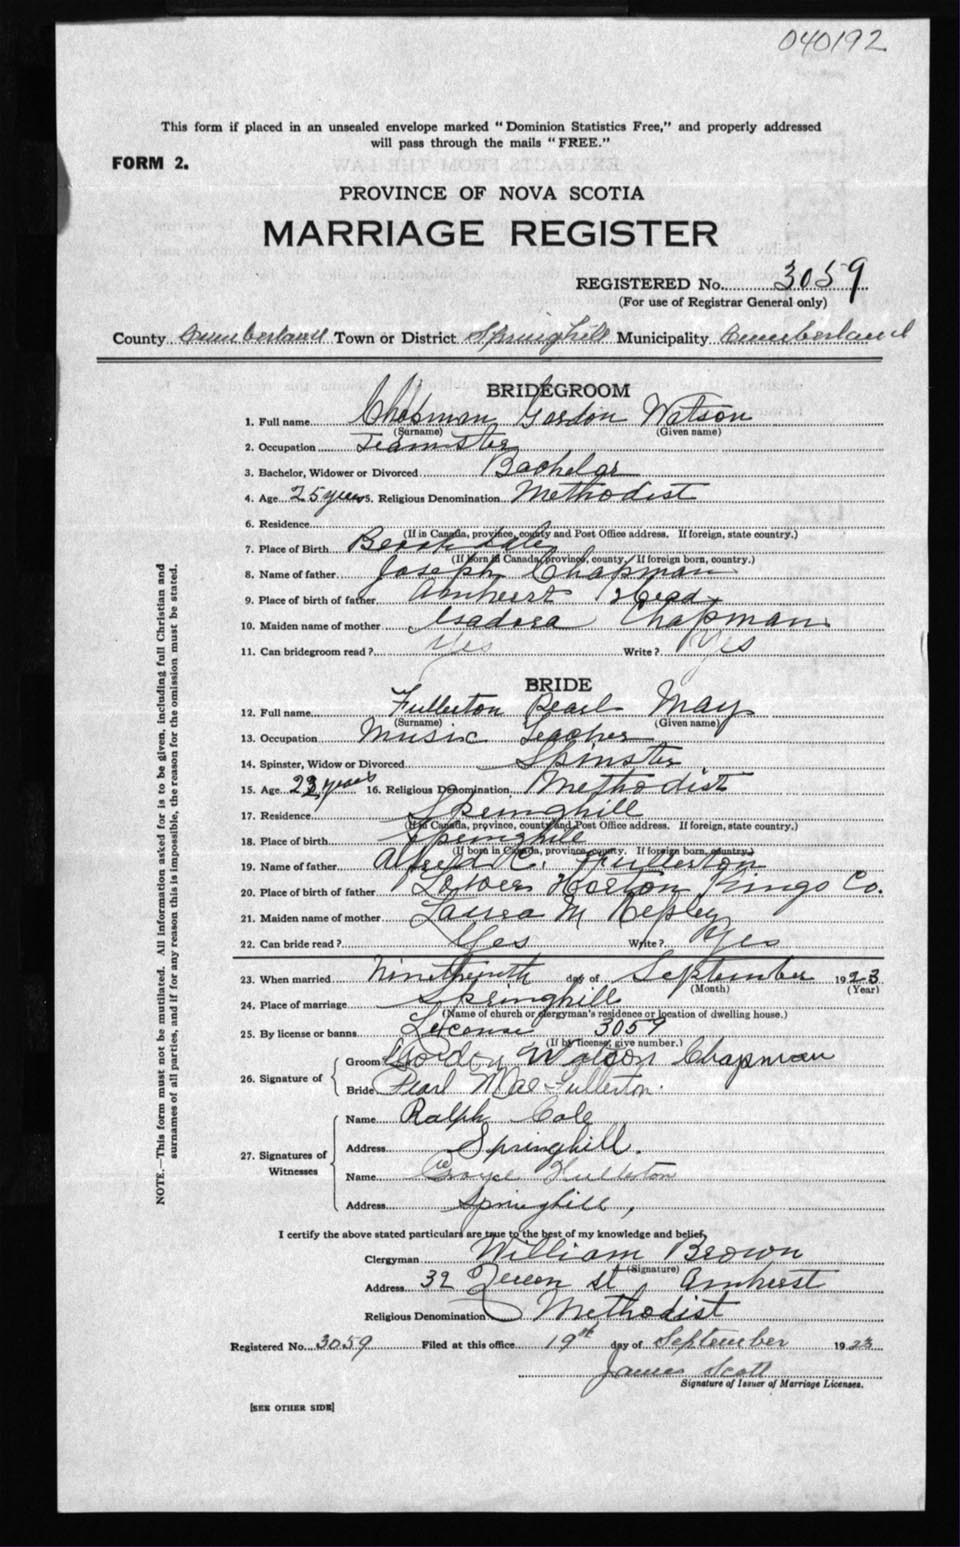 040192
This form if placed in an unsealed envelope marked "Dominion Statistics Free," and properly addressed
will pass through the mails "FREE."
FORM 2.
PROVINCE OF NOVA SCOTIA
MARRIAGE REGISTER
REGISTERED No. 3059
(For use of Registrar General only)
County Cumberland Town or District Springhill Municipality Cumberland
BRIDEGROOM
1. Full name Chapman Gordon Watson
(Surname) (Given name)
2. Occupation Teamster
3. Bachelor, Widower or Divorced Bachelor
4. Age 25 years 5. Religious Denomination Methodist
6. Residence
(If in Canada, province, county and Post Office address. If foreign, state country.)
7. Place of Birth
(If born in Canada, province, county. If foreign born, country.)
8. Name of father Joseph Chapman
9. Place of birth of father Amherst Head
10. Maiden name of mother Isadora Chapman
11. Can bridegroom read? Yes Write? Yes
BRIDE
12. Full name Fullerton Pearl May
(Surname) (Given name)
13. Occupation Music Teacher
14. Spinster, Widow or Divorced Spinster
15. Age years 16. Religious Denomination Methodist
17. Residence Springhill
(If in Canada, province, county and Post Office address. If foreign, state country.)
18. Place of birth Springhill
(If born in Canada, province, county. If foreign born, country.)
19. Name of father Alfred C. Fullerton
20. Place of birth of father Lower Horton Kings Co.
21. Maiden name of mother Laura M Repley
22. Can bride read? Yes Write? Yes
23. When married Nineteenth day of September 1923
(Month) (Year)
24. Place of marriage Springhill
(Name of church or clergyman's residence or location of dwelling house.)
25. By license or banns License 3059
(If by license, give number.)
26. Signature of
Groom Gordon Watson Chapman
Bride Pearl Mae Fullerton.
27. Signatures of Witnesses
Name Ralph Cole
Address Springhill.
Name Fullerton
Address Springhill,
I certify the above stated particulars are true to the best of my knowledge and belief,
Clergyman William Brown
(Signature)
Address 32 St Amherst
Religious Denomination Methodist
Registered No. 3059 Filed at this office 19th day of September 1923
James Scott
Signature of Issuer of Marriage Licenses.
[SEE OTHER SIDE]
NOTE.—This form must not be mutilated. All information asked for is to be given, including full Christian and
surnames of all parties, and if for any reason this is impossible, the reason for the omission must be stated.